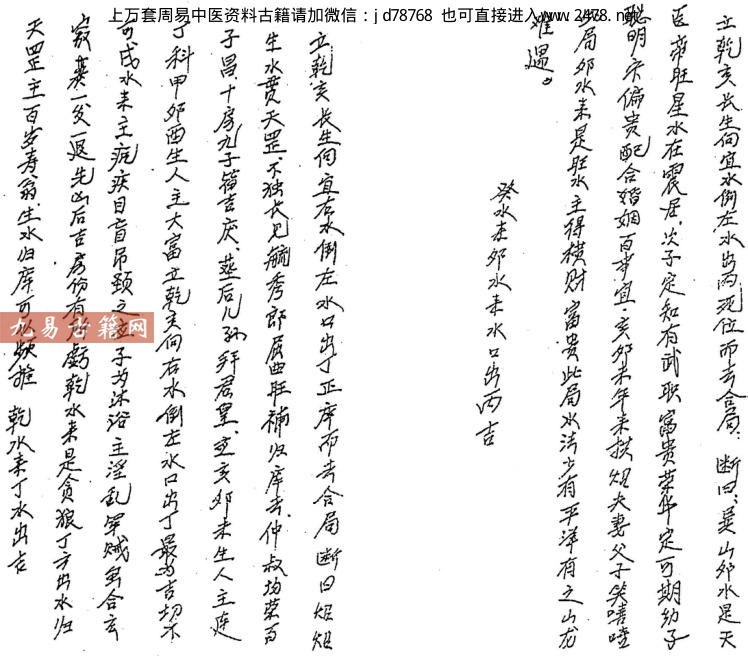 上万套周易中医资料古籍请加微信：jd78768 也可直接进入www.2478.net
立乾亥长生向宜水倒左水出丙沉位而去合局：断曰：巽山卯水是天
医帝旺星水在震居，次子定知有武职富贵荣华定可期幼子
聪明宋偏贵配合婚姻百事宜，亥卯未年来拱照夫妻父子笑嘻嘻
此局卯水来是旺水主得横财富贵此局水法少有平洋有之山龙
难遇。
癸水来卯水来水口出丙吉
立乾亥长生向宜右水倒左水口出丁正库而去合局断曰
生水贯天罡，不独长儿毓秀郎屈曲旺神归库去，仲叔均荣百
子昌，十房九子皆吉庆，葬后儿孙拜君皇，亥卯未生人主连
丁科甲卯酉生人主大富立乾亥向右水倒左水口出丁最为吉切不
可戌水来主疯疾目盲吊颈之 子为沐浴主淫乱 贼与合玄
寂 一发一退先凶后吉房份有 亏乾水来是贪狼丁方出水归
天罡主百岁寿翁，生水归库可 推 乾水来丁水出吉
九易古籍网